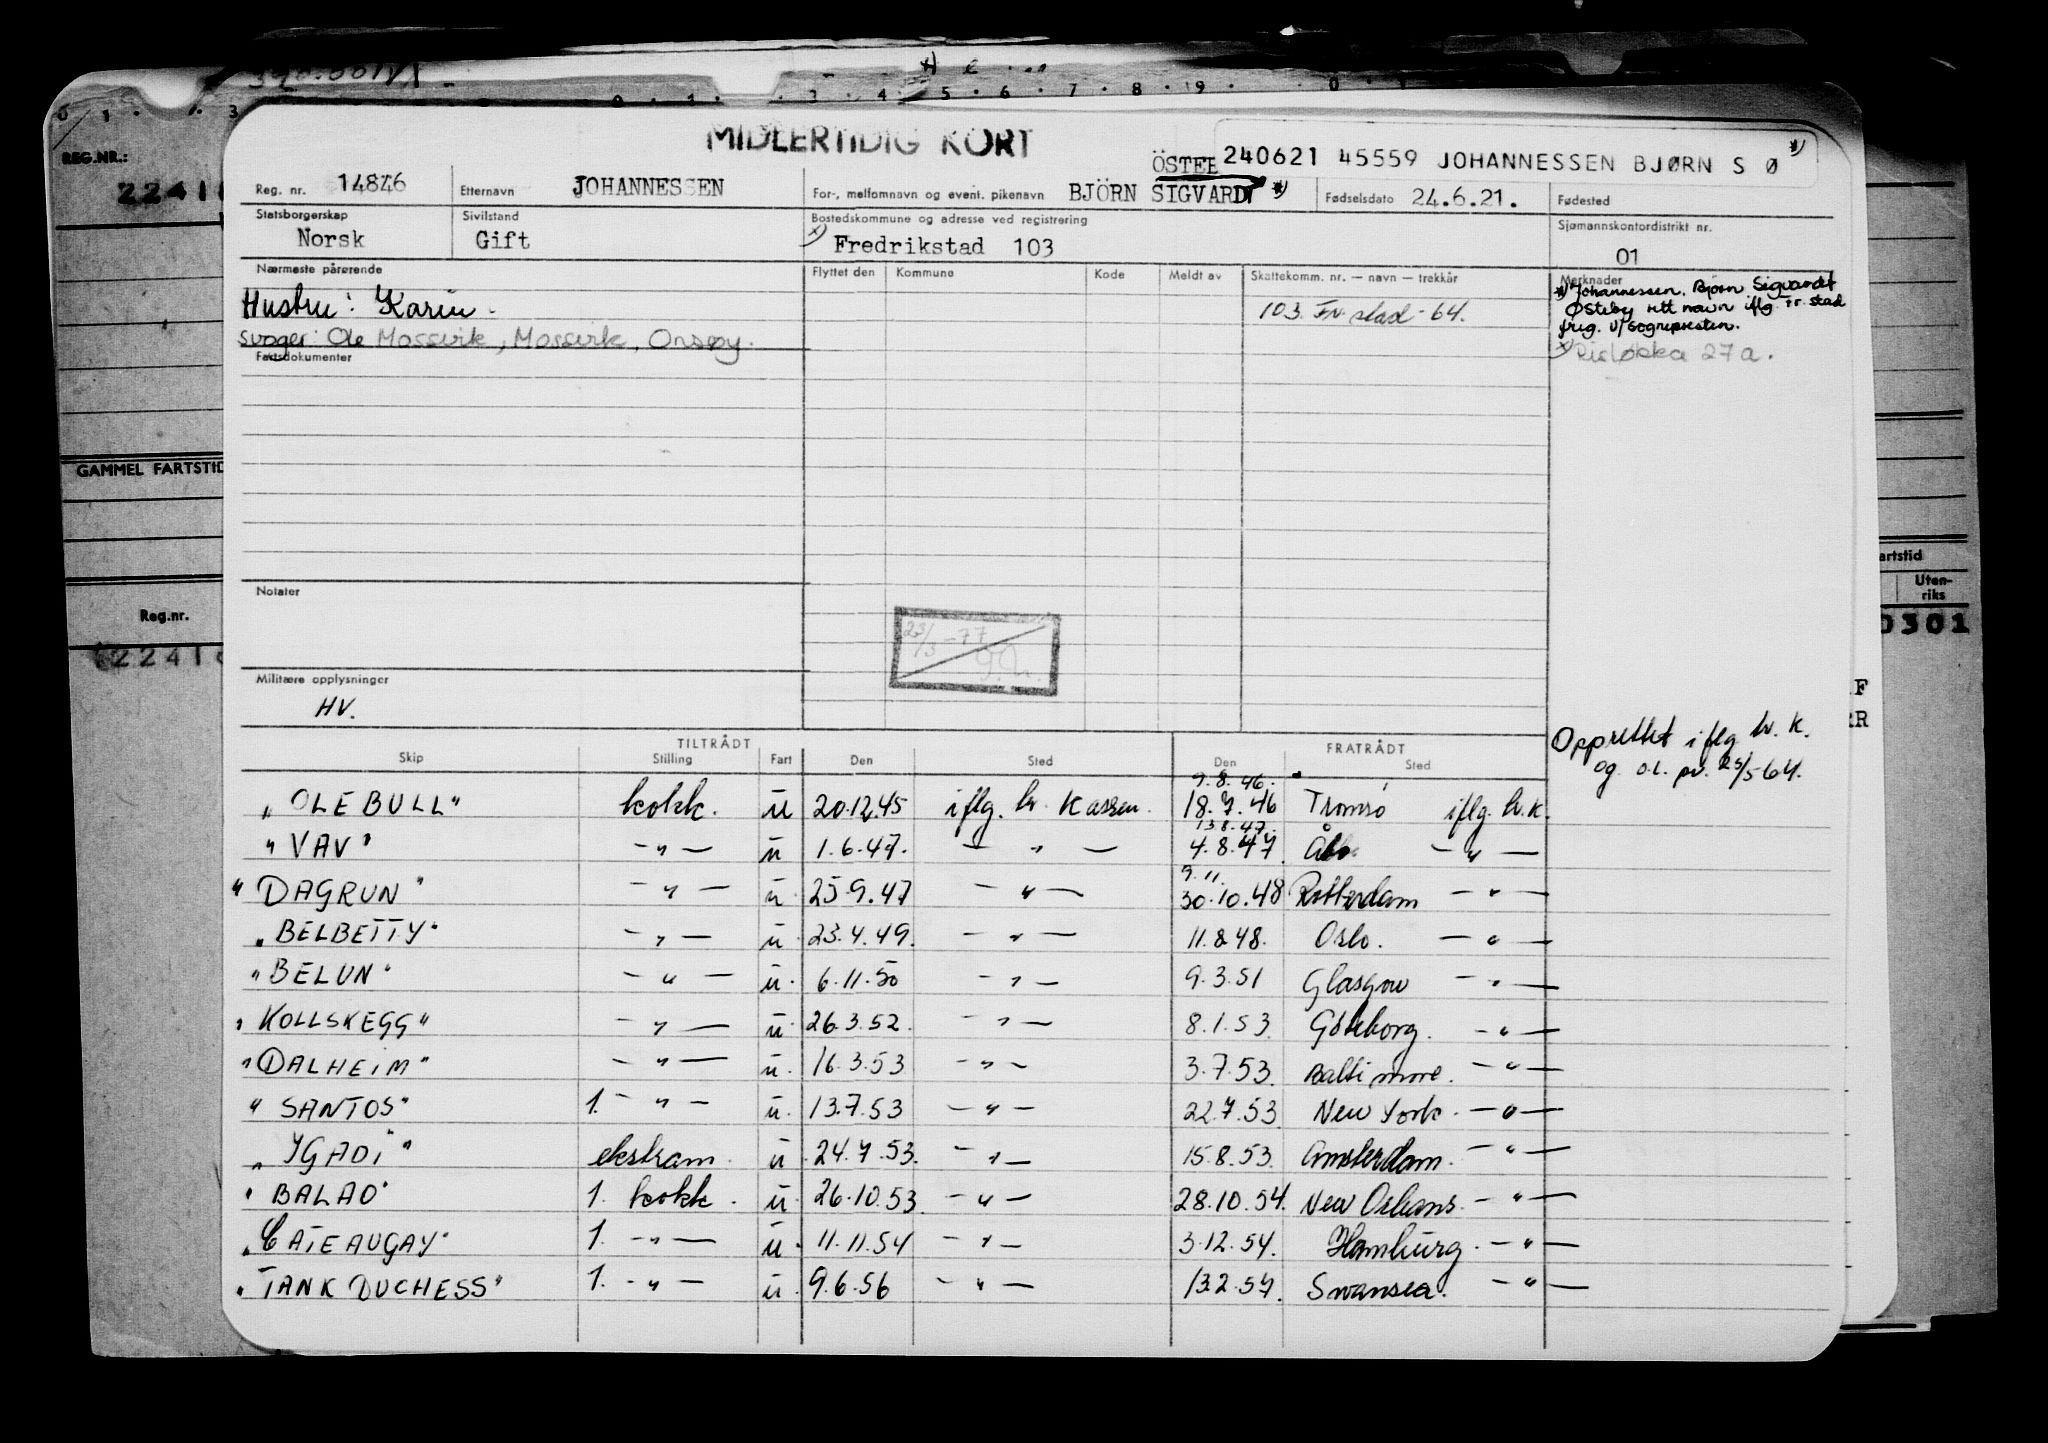 0 1 3 4 5 6 7 8 9 0
MIDLERTIDIG KORT
REG.NR.:
ÖSTEB 240621 45559 JOHANNESSEN BJØRN S Ø *)
Reg. nr. 14846 Etternavn JOHANNESSEN For-, mellomnavn og event. pikenavn BJÖRN SIGVARDT *) Fødselsdato 24.6.21. Fødested
Statsborgerskap Norsk Sivilstand Gift Bostedskommune og adresse ved registrering x) Fredrikstad 103 Sjømannskontordistrikt nr. 01
Nærmeste pårørende Flyttet den Kommune Kode Meldt av Skattekomm. nr. — navn — trekkår Merknader
Hustru: Karin. 103. Fr. stad - 64.
svoger: Ole Mossvirk, Mossvirk, Onsøy.
*) Johannessen, Bjørn Sigvardt
Østeby rett navn iflg Fr. stad
freg. v/sogrepresten.
x) Risløkka 27a.
Fartsdokumenter
GAMMEL FARTSTID
Notater
25/3 -77
Militære opplysninger
HV.
Reg.nr.
artstid
Uten-
riks
0301
F
R
Opprettet iflg hv. K.
og o.l. pr. 25/5-64.
TILTRÅDT FRATRÅDT
Skip Stilling Fart Den Sted Den Sted
9.8.46.
"OLE BULL" kokk. u 20.12.45 iflg. hv. Kassen. 18.7.46 Tromsø iflg. hv.k.
13.8.47.
"VAV" — " — u 1.6.47. — " — 4.8.47 Åbo — " —
9.11.
"DAGRUN" — " — u. 25.9.47 — " — 30.10.48 Rotterdam — " —
"BELBETTY" — " — u. 23.4.49. — " — 11.8.48. Oslo. — " —
"BELUN" — " — u. 6.11.50 — " — 9.3.51 Glasgow — " —
"KOLLSKEGG" — " — u. 26.3.52. — " — 8.1.53. Göteborg. — " —
"DALHEIM" — " — u. 16.3.53 — " — 3.7.53. Baltimore. — " —
"SANTOS" 1. — " — u. 13.7.53 — " — 22.7.53 New York. — " —
"YGADI" ekstram. u. 24.7.53. — " — 15.8.53. Amsterdam. — " —
"BALAO" 1. kokk. u. 26.10.53. — " — 28.10.54. New Orleans. — " —
"CATEAUGAY" 1. — " — u. 11.11.54 — " — 3.12.54. Hamburg. — " —
"TANK DUCHESS" 1. — " — u. 9.6.56 — " — 13.2.57. Swansea. — " —